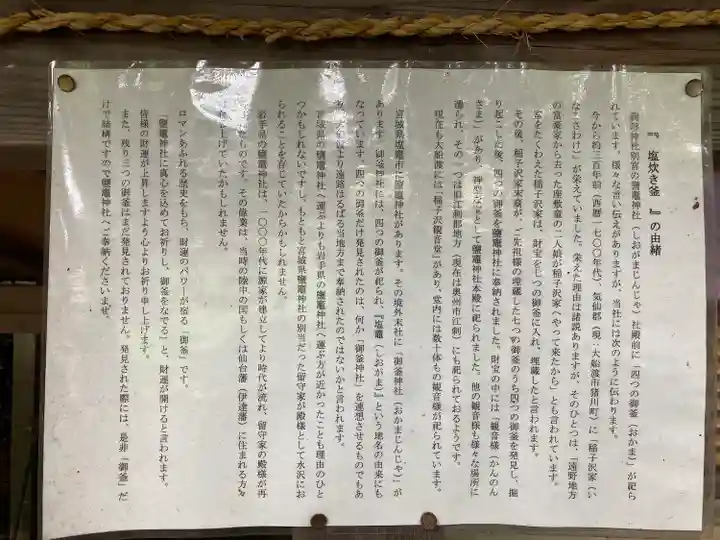 『塩炊き釜』の由緒
駒形神社別宮の鹽竈神社（しおがまじんじゃ）社殿前に「四つの御釜（おかま）」が祀ら
れています。様々な言い伝えがありますが、当社には次のように伝わります。
今から約三百年前（西暦一七〇〇年代）、気仙郡（現・大船渡市猪川町）に「稲子沢家（い
なごさわけ）」が栄えていました。栄えた理由は諸説ありますが、そのひとつは、「遠野地方
の富豪家から去った座敷童の二人娘が稲子沢家へやって来たから」とも言われています。
富をたくわえた稲子沢家は、財宝を七つの御釜に入れ、埋蔵したと言われます。
その後、稲子沢家末裔が、ご先祖様の埋蔵した七つの御釜のうち四つの御釜を発見し、掘
り起こした後、四つの御釜を鹽竈神社に奉納されました。財宝の中には「観音様（かんのん
さま）」があり、神聖な
として鹽竈神社本殿に祀られました。他の観音様も様々な場所に
祀られ、その一つは旧江刺郡地方（現在は奥州市江刺）にも祀られておるようです。
現在も大船渡には「稲子沢観音堂」があり、堂内には数十体もの観音様が祀られています。
宮城県塩竈市に鹽竈神社があります。その境外末社に「御釜神社（おかまじんじゃ）」が
あります。御釜神社には、四つの御釜が祀られ、『塩竈（しおがま）』という地名の由来にも
なっています。四つの御釜だけ発見されたのは、何か「御釜神社」を連想させるものでもあ
より遠路はるばる当地方まで奉納されたのではないかと言われます。
宮城県の鹽竈神社へ運ぶよりも岩手県の鹽竈神社へ運ぶ方が近かったことも理由のひと
つかもしれないですし、もともと宮城県鹽竈神社の別当だった留守家が殿様として水沢にお
られることを存じていたからかもしれません。
岩手県の鹽竈神社は、一〇〇〇年代に源家が建立してより時代が流れ、留守家の殿様が再
ものです。その偉業は、当時の陸中の国もしくは仙台藩（伊達藩）に住まれる方々
上げていたかもしれません。
ロマンあふれる歴史をもち、財運のパワーが宿る「御釜」です。
「鹽竈神社に真心を込めてお祈りし、御釜をなでる」と、財運が開けると言われます。
皆様の財運が上昇しますよう心よりお祈り申し上げます。
また、残り三つの御釜はまだ発見されておりません。発見された際には、是非「御釜」だ
けで結構ですので鹽竈神社へご奉献くださいませ。